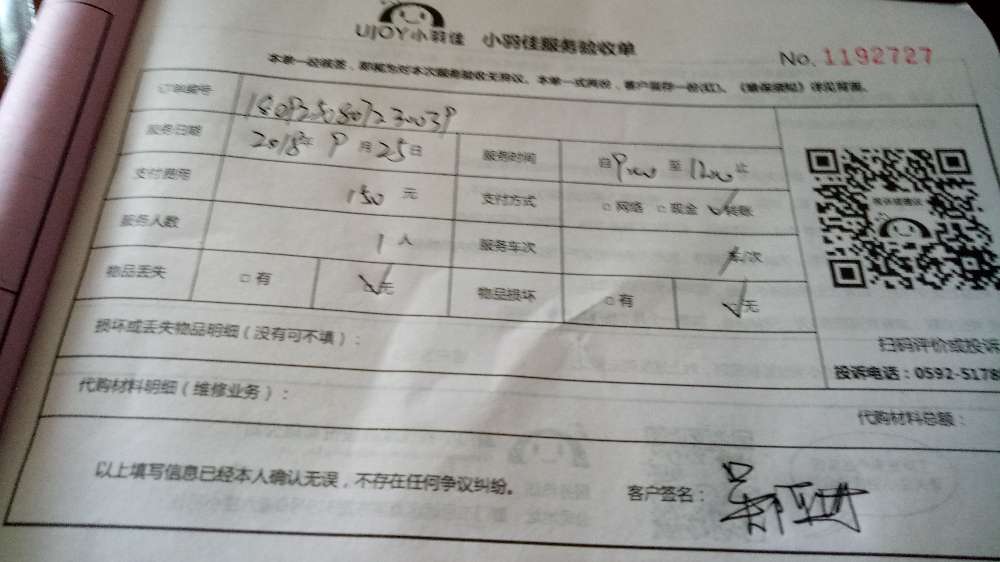 UJOY小羽佳 小羽佳服务验收单
No. 1192727
本单一经签签，即视为对本次服务验收无异议。本单一式两份，客户留存一份(红)。《维保须知》详见背面。
订单编号
服务日期 2018年 9月25日 服务时间 自9:00至12:00止
支付费用 150元 支付方式 □网络 □现金 ✓转账
服务人数 1人 服务车次 车/次
物品丢失 □有 ✓无 物品损坏 □有 ✓无
损坏或丢失物品明细（没有可不填）：
代购材料明细（维修业务）：
扫码评价或投诉
投诉电话：0592-5178
代购材料总额：
以上填写信息已经本人确认无误，不存在任何争议纠纷。
客户签名：